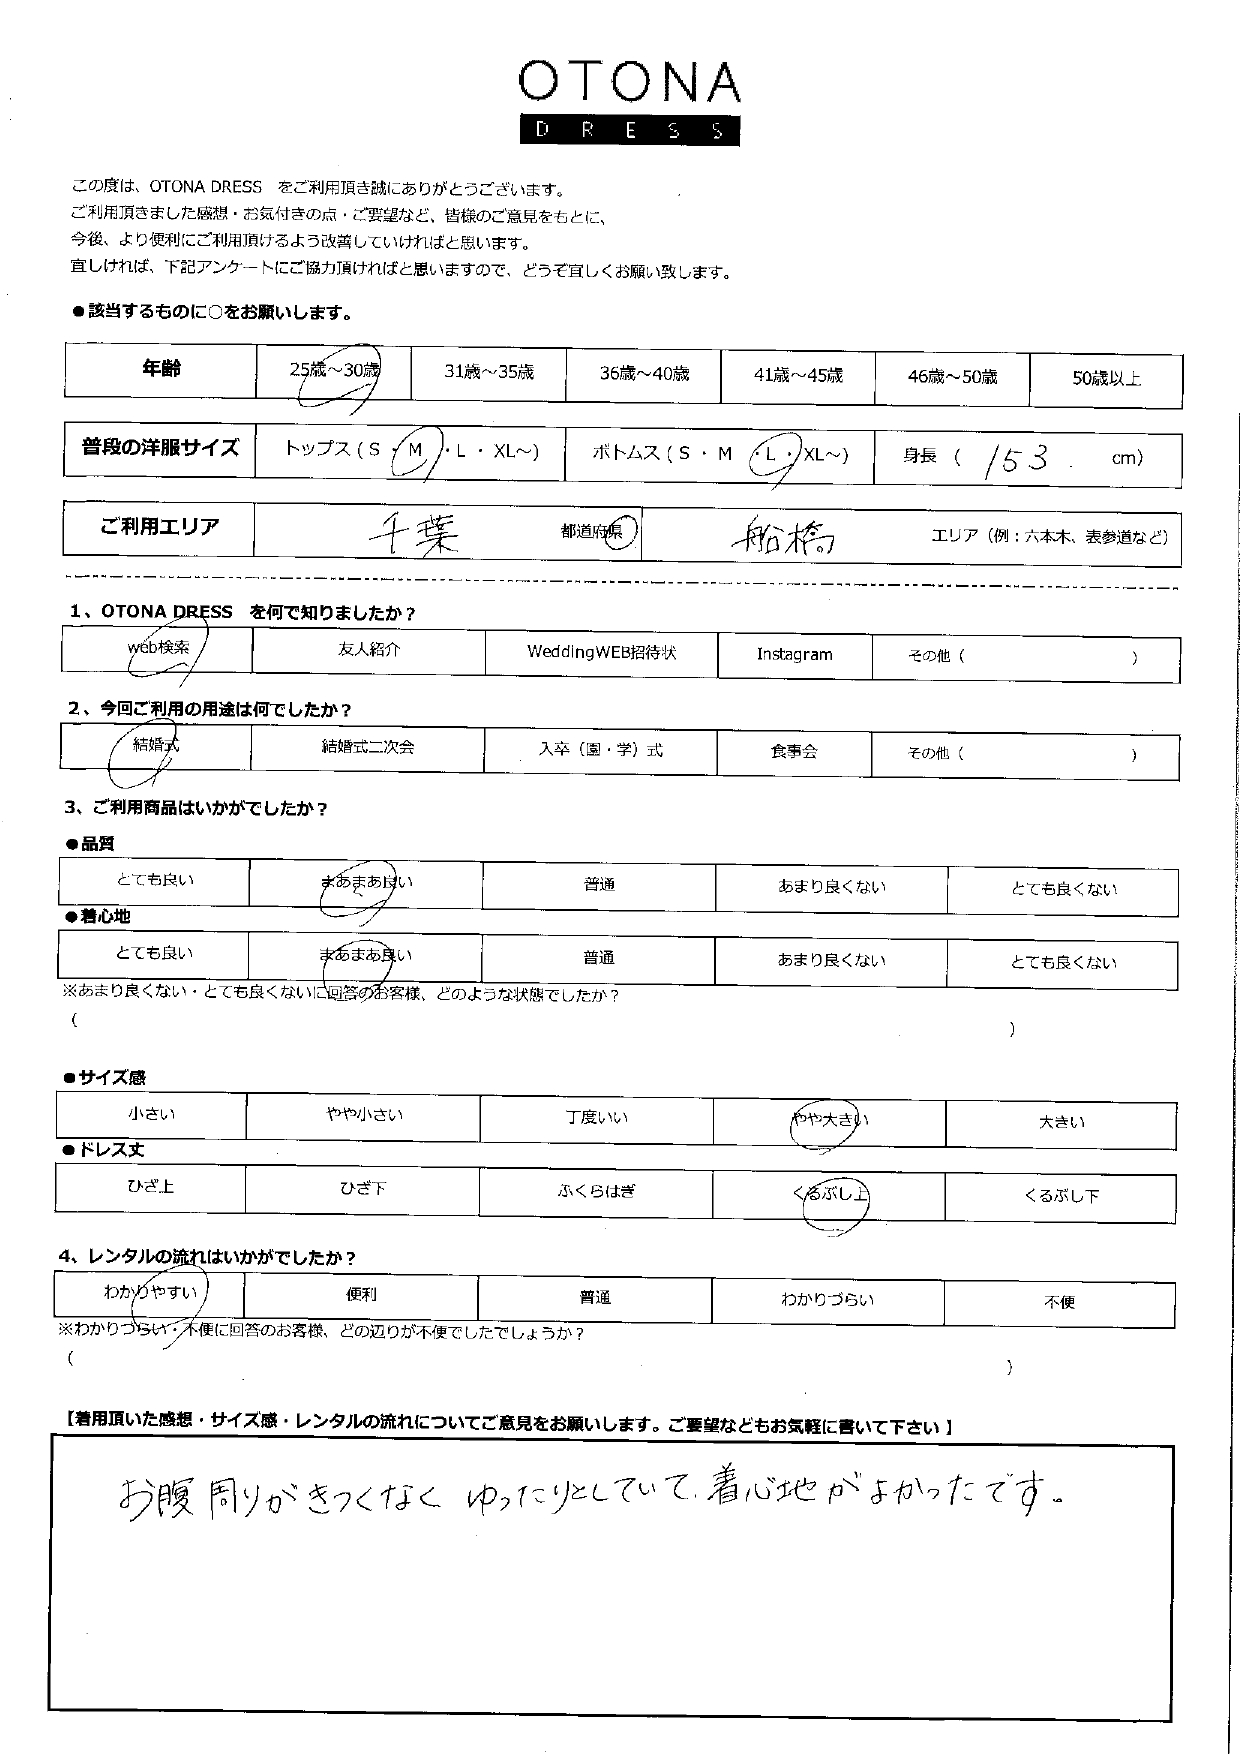 OTONA
DRESS
この度は、OTONA DRESS をご利用頂き誠にありがとうございます。
ご利用頂きました感想・お気付きの点・ご要望など、皆様のご意見をもとに、
今後、より便利にご利用頂けるよう改善していければと思います。
宜しければ、下記アンケートにご協力頂ければと思いますので、どうぞ宜しくお願い致します。
●該当するものに○をお願いします。
年齢 25歳～30歳 31歳～35歳 36歳～40歳 41歳～45歳 46歳～50歳 50歳以上
普段の洋服サイズ トップス ( S ・ M ・ L ・ XL～) ボトムス ( S ・ M ・ L ・ XL～) 身長 ( 153 cm)
ご利用エリア 千葉 都道府県 船橋 エリア（例：六本木、表参道など）
1、OTONA DRESS を何で知りましたか？
web検索 友人紹介 WeddingWEB招待状 Instagram その他 ( )
2、今回ご利用の用途は何でしたか？
結婚式 結婚式二次会 入卒（園・学）式 食事会 その他 ( )
3、ご利用商品はいかがでしたか？
●品質
とても良い まあまあ良い 普通 あまり良くない とても良くない
●着心地
とても良い まあまあ良い 普通 あまり良くない とても良くない
※あまり良くない・とても良くないに回答のお客様、どのような状態でしたか？
( )
●サイズ感
小さい やや小さい 丁度いい やや大きい 大きい
●ドレス丈
ひざ上 ひざ下 ふくらはぎ くるぶし上 くるぶし下
4、レンタルの流れはいかがでしたか？
わかりやすい 便利 普通 わかりづらい 不便
※わかりづらい・不便に回答のお客様、どの辺りが不便でしたでしょうか？
( )
【着用頂いた感想・サイズ感・レンタルの流れについてご意見をお願いします。ご要望などもお気軽に書いて下さい】
お腹周りがきつくなく ゆったりとしていて、着心地がよかったです。